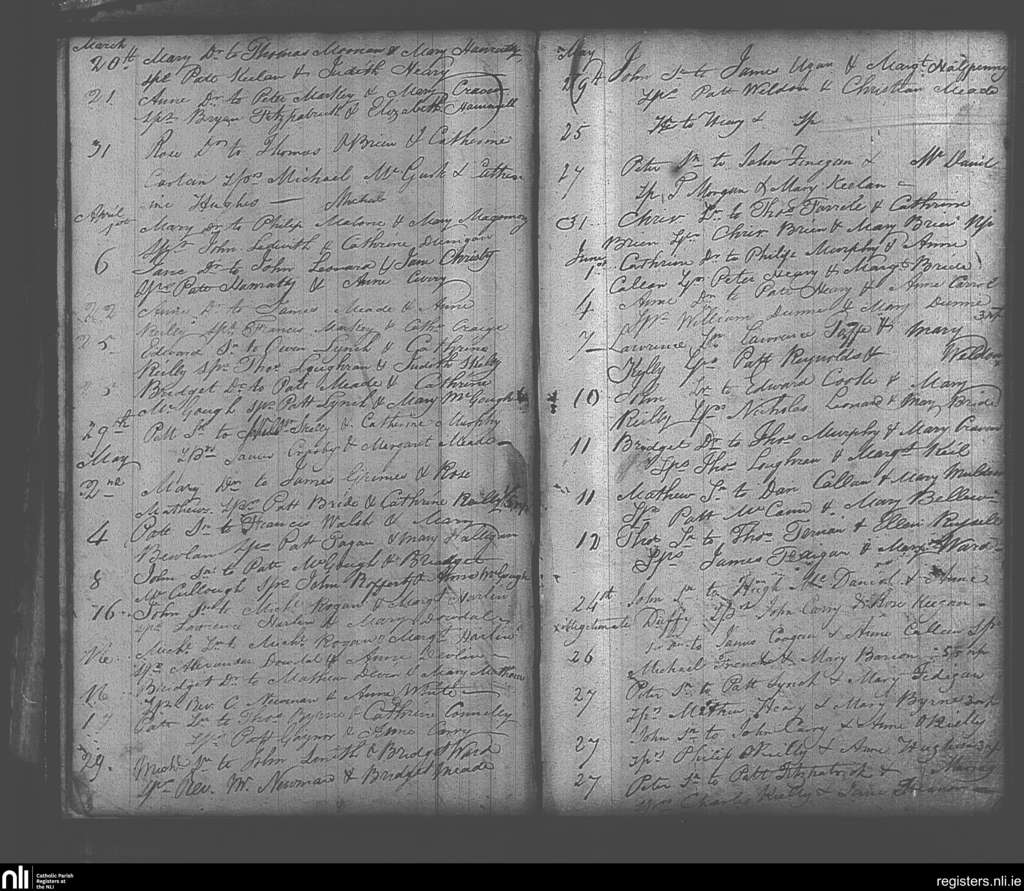 March
20th Mary Dr to Thomas Moonan & Mary Hanratty
Sps Patt Keelan & Judith Heary
21 Anne Dr to Peter Markey & Mary Craven
Sps Bryan Fitzpatrick & Elizabeth
31 Rose Dr to Thomas OBrien & Catherine
Carlan Sprs Michael Mc Gurk & Cathe
ine Hughes —
April
1st Mary Dr to Philip Malone & Mary
Sps John Ledwith & Cathrine Dungan
6 Jane Dr to John Leonard & Jane Christy
Sps Patt Hanratty & Anne Curry
22 Anne Dr to James Meade & Anne
Reilly Sps Francis Markey & Cath. Craige
25 Edward Sn to Owen Lynch & Cathrine
Reilly Sps Thos Loughran & Judith Reilly
Bridget Dr to Patt Meade & Cathrine
Mc Gough Sps Patt Lynch & Mary McGough
29th Patt Sn to Skelly & Catherine Murphy
James & Margaret Meade
May
2nd Mary Dr to James Grimes & Rose
Mathews. Sps Patt Bride & Cathrine Reilly
4 Patt Sn to Francis Walsh & Mary
Bewlan Sps Patt Fagan & Mary Halligan
8 John Sn to Patt McGough & Bridget
McCullough Sps John & Anne McGough
16 John Sn to Michl Hogan & Margt Harlin
Sps Lawrence Harlin & Mary Dowdal
Michl Sn to Michl Rogan & Margt Harlin
Sps Alexander Dowdal & Anne Devlin
16 Bridget Dr to Mathew Deven & Mary Mathews
Sps Rev. C. Newman & Anne White
17 Patt Sn to Thos Byrne & Cathrine Connelly
Sps Patt Gaynor & Anne Carry
29. Michl Sn to John Smith & Bridget Ward
Sps Rev. Mr. Newman & Bridget Meade
May
29th John Sn to James Ugan & Margt Halfpenny
Sps Patt Weldon & Christian Meade
25 to & Sp
27 Peter Sn to John Finegan & Mc David
Sp. T Morgan & Mary Keelan —
31 Chrisr Sn to Thos Farrele & Cathrine
Brien Sps Chrisr Brien & Mary Brien
June
1st Cathrine Dr to Philip Murphy & Anne
Calean Sps Peter Heary & Margt Brien
4 Anne Dr to Patt Heary & Anne Carrol
Sps William Dunne & Mary Dunne
7 Lawrence Sn Lawrence Taffe & Mary
Kelly Sps Patt Reynolds & Weldon
10 John Sn to Edward Cooke & Mary
Reilly Sps Nicholas Leonard & Mary Bride
11 Bridget Dr to Thos Murphy & Mary Craven
Sps Thos Loughran & Margt Keil
11 Mathew Sn to Dan Callan & Mary
Sps Patt McCann & Mary Bellew
12 Thos Sn to Thos Fernan & Ellen Russell
Sps James Feaigan & Mary Ward
24th John Sn to Hugh Mc Daniel & Anne
illegitimate Duffy Sps John Carry & Anne Keegan —
Sn to James Coogan & Anne Callan Sps
26 Michael French & Mary Barron
27 Peter Sn to Patt Lynch & Mary Fedigan
Sps Mathew Heary & Mary Byrne
27 John Sn to John Carry & Anne OReilly
Sps Philip OReilly & Anne Hughes
27 Peter Sn to Patt Fitzpatrick & Mary
Sps Charles Kelly & Jane
nli
Catholic Parish
Registers at
the NLI
registers.nli.ie